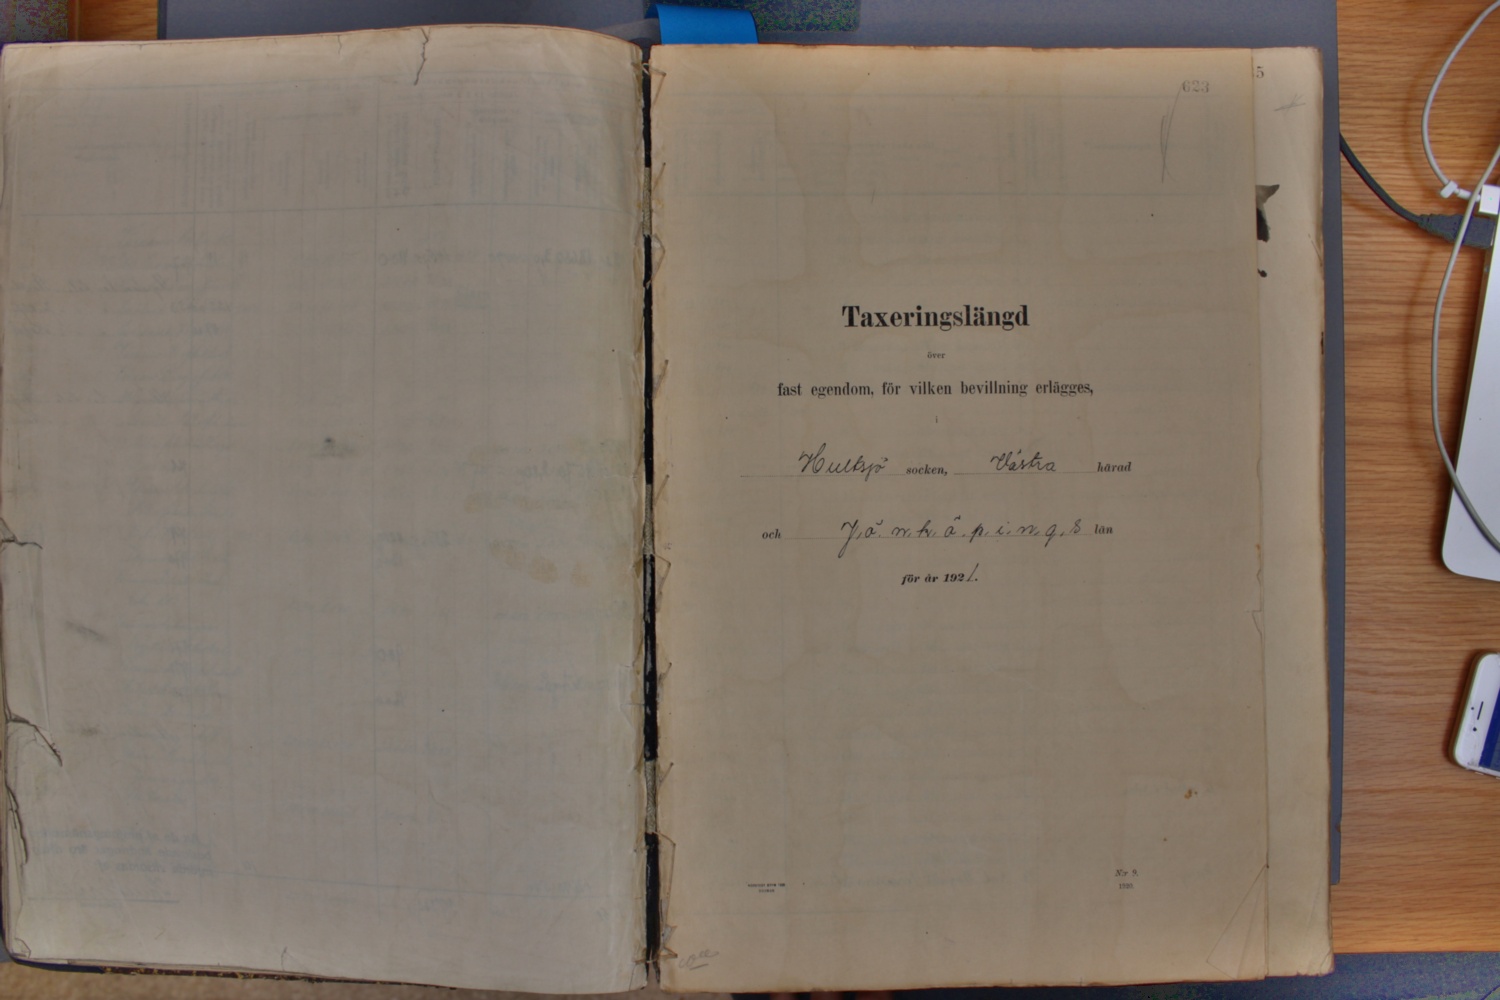 623
5
Taxeringslängd
över
fast egendom, för vilken bevillning erlägges,
i
Hultsjö socken, Västra härad
och Jönköpings län
för år 1921.
N:r 9.
1920.